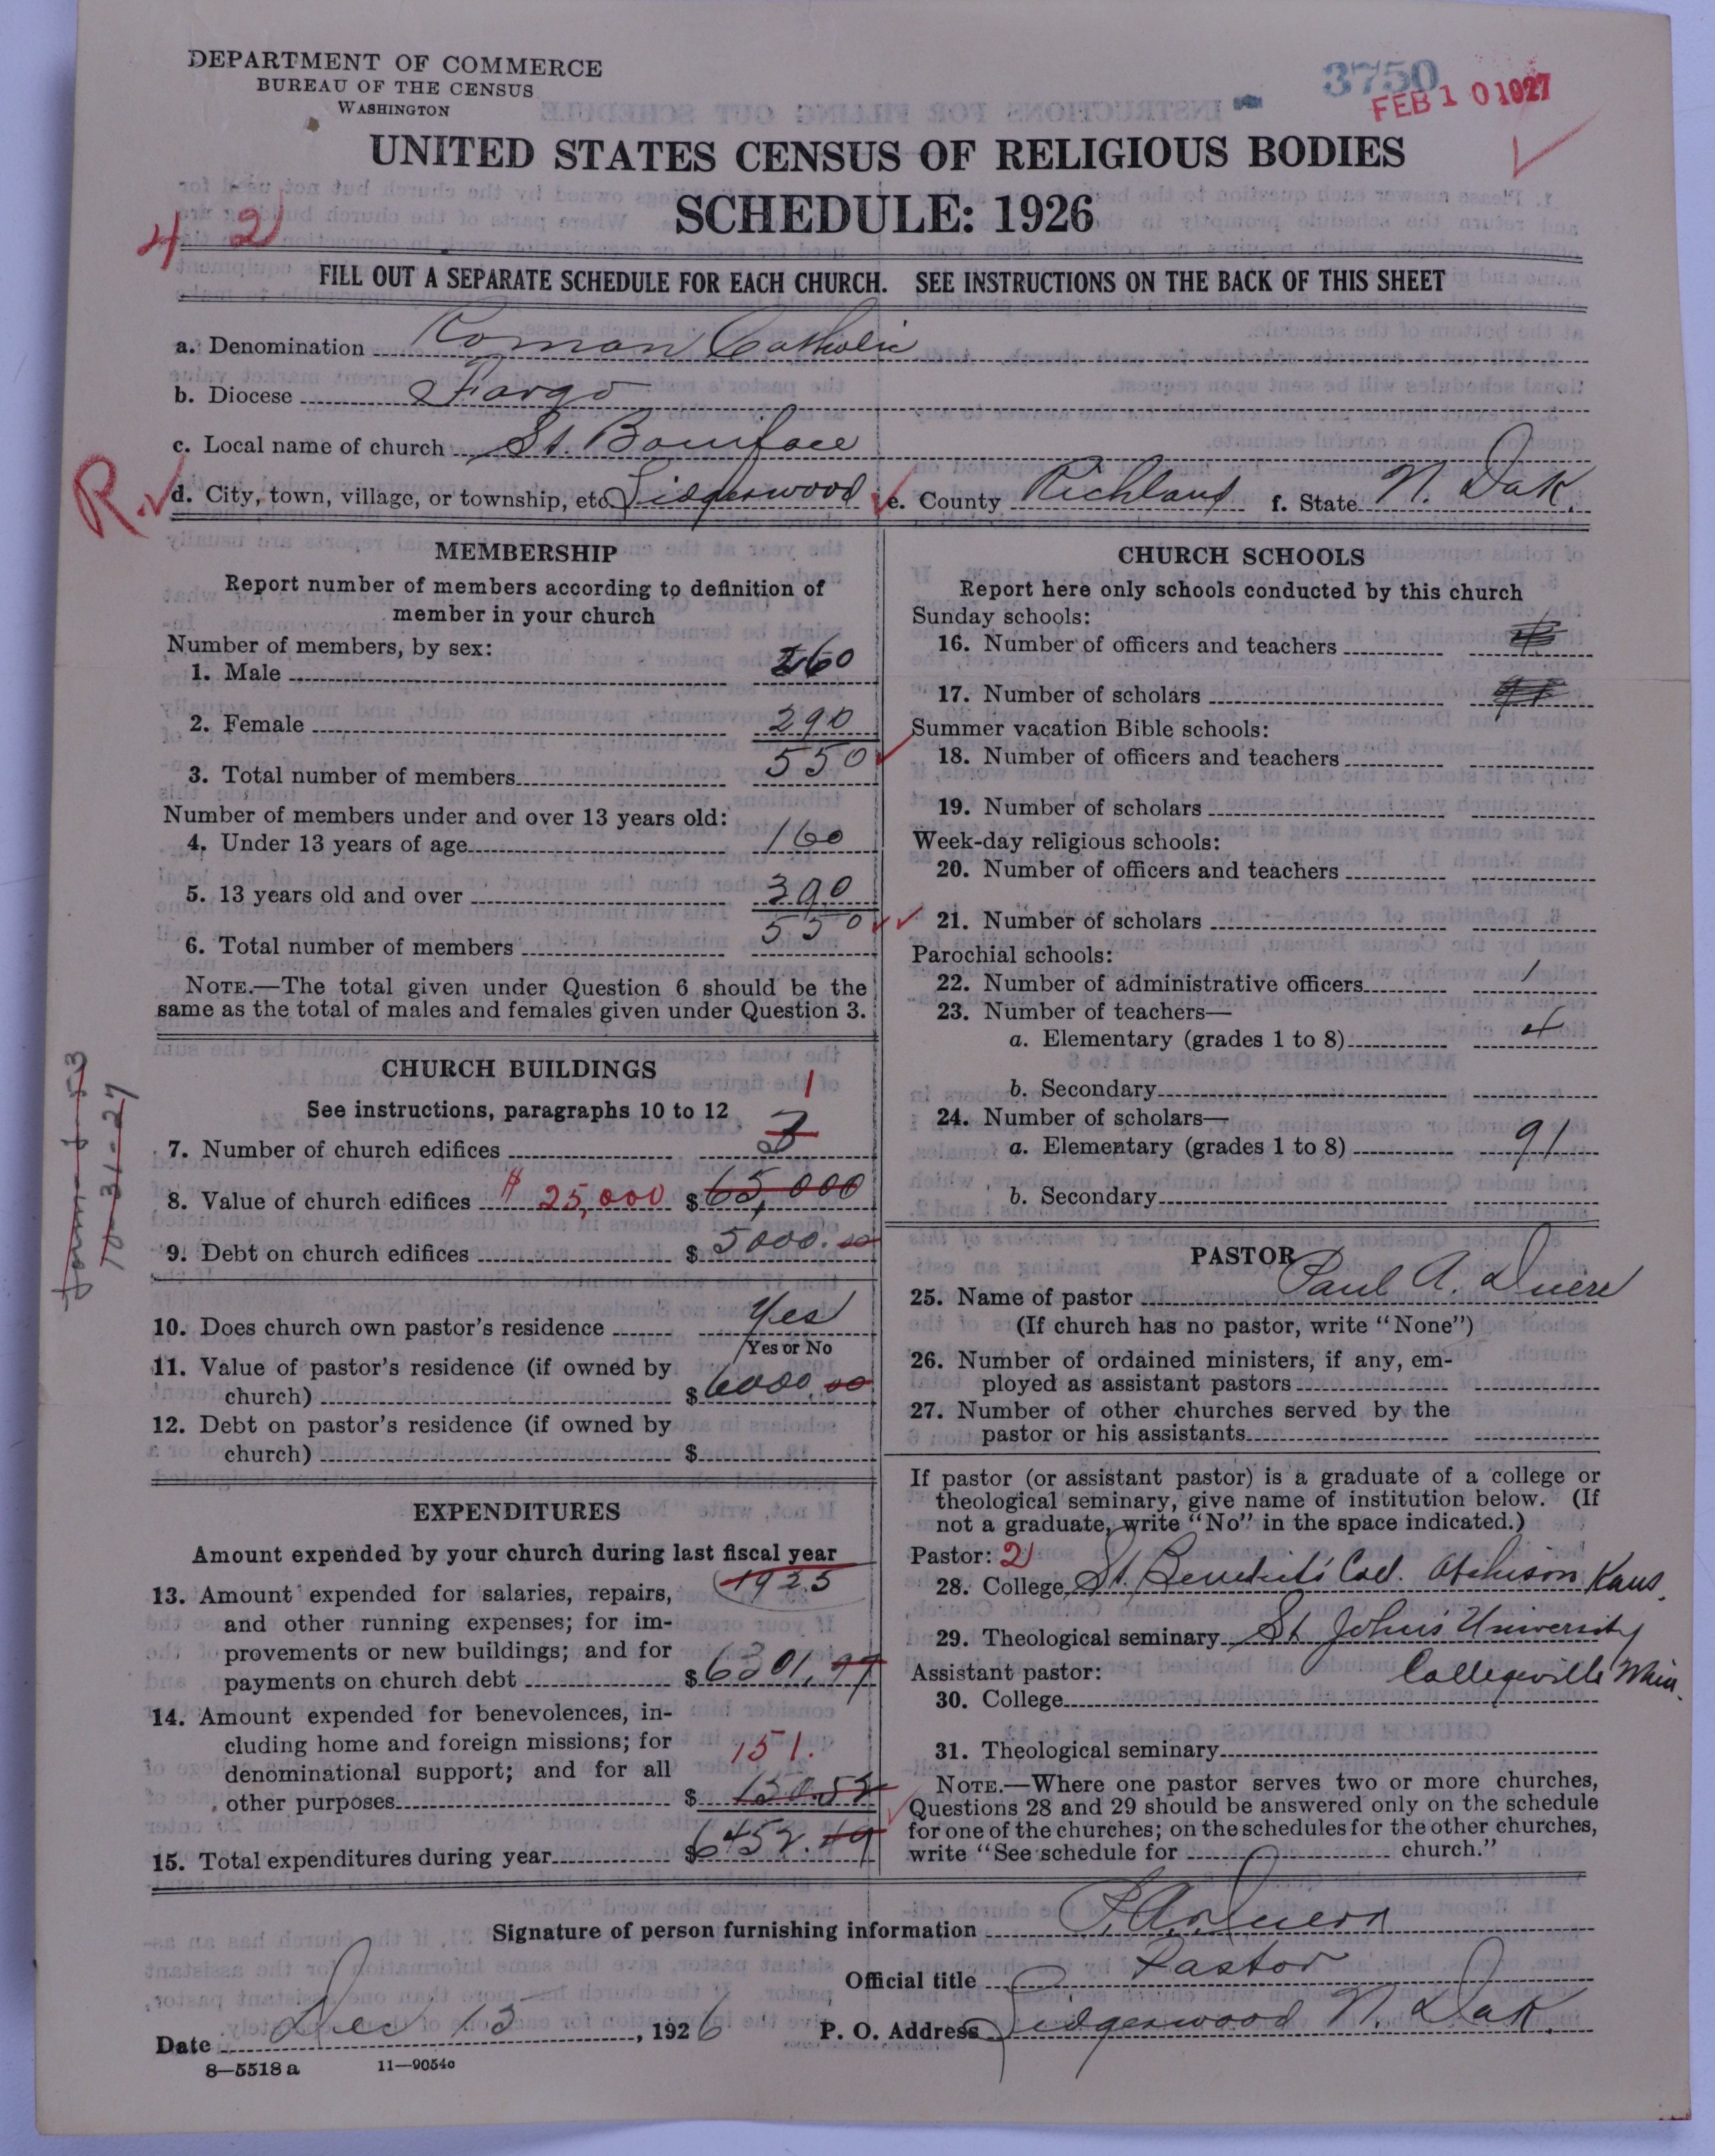 DEPARTMENT OF COMMERCE
BUREAU OF THE CENSUS
WASHINGTON
3750
FEB 10 1927
UNITED STATES CENSUS OF RELIGIOUS BODIES
SCHEDULE: 1926
4 2
FILL OUT A SEPARATE SCHEDULE FOR EACH CHURCH. SEE INSTRUCTIONS ON THE BACK OF THIS SHEET
a. Denomination Roman Catholic
b. Diocese Fargo
c. Local name of church St. Boniface
R. d. City, town, village, or township, etc. Lidgerwood e. County Richland f. State N. Dak.
MEMBERSHIP
Report number of members according to definition of
member in your church
Number of members, by sex:
1. Male 260
2. Female 290
3. Total number of members 550
Number of members under and over 13 years old:
4. Under 13 years of age 160
5. 13 years old and over 390
6. Total number of members 550
NOTE.—The total given under Question 6 should be the
same as the total of males and females given under Question 3.
CHURCH BUILDINGS
See instructions, paragraphs 10 to 12
1
7. Number of church edifices
8. Value of church edifices $ 25,000 $ 65,000
9. Debt on church edifices $ 5000.00
10. Does church own pastor's residence Yes
Yes or No
11. Value of pastor's residence (if owned by
church) $ 6000.00
12. Debt on pastor's residence (if owned by
church) $
10-31-27
EXPENDITURES
Amount expended by your church during last fiscal year
1925
13. Amount expended for salaries, repairs,
and other running expenses; for im-
provements or new buildings; and for
payments on church debt $ 6301.97
14. Amount expended for benevolences, in-
cluding home and foreign missions; for
denominational support; and for all
151.
other purposes $ 150.52
15. Total expenditures during year $ 6452.49
CHURCH SCHOOLS
Report here only schools conducted by this church
Sunday schools:
16. Number of officers and teachers
17. Number of scholars
Summer vacation Bible schools:
18. Number of officers and teachers
19. Number of scholars
Week-day religious schools:
20. Number of officers and teachers
21. Number of scholars
Parochial schools:
22. Number of administrative officers 1
23. Number of teachers—
a. Elementary (grades 1 to 8) 4
b. Secondary
24. Number of scholars—
a. Elementary (grades 1 to 8) 91
b. Secondary
PASTOR
25. Name of pastor Paul A.
(If church has no pastor, write "None")
26. Number of ordained ministers, if any, em-
ployed as assistant pastors
27. Number of other churches served by the
pastor or his assistants
If pastor (or assistant pastor) is a graduate of a college or
theological seminary, give name of institution below. (If
not a graduate, write "No" in the space indicated.)
Pastor: 2
28. College St. Benedict's Col. Atchison Kans.
29. Theological seminary St John's University
Collegeville Minn.
Assistant pastor:
30. College
31. Theological seminary
NOTE.—Where one pastor serves two or more churches,
Questions 28 and 29 should be answered only on the schedule
for one of the churches; on the schedules for the other churches,
write "See schedule for church."
Signature of person furnishing information P. A.
Official title Pastor
Date Dec 15, 1926 P. O. Address Lidgerwood N. Dak.
8—5518 a 11—9054c